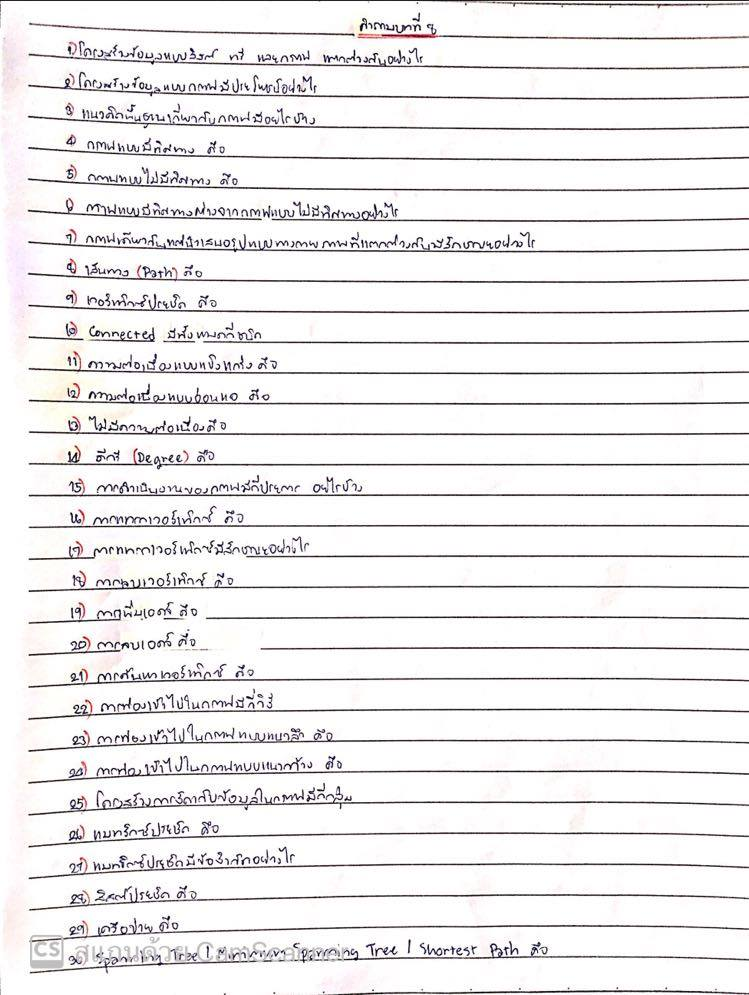 คำถามบทที่ 8
1) โครงสร้างข้อมูลแบบลิงค์ ทรี และกราฟ แตกต่างกันอย่างไร
2) โครงสร้างข้อมูลแบบกราฟมีประโยชน์อย่างไร
3) แนวคิดพื้นฐานเกี่ยวกับกราฟมีอะไรบ้าง
4) กราฟแบบมีทิศทาง คือ
5) กราฟแบบไม่มีทิศทาง คือ
6) กราฟแบบมีทิศทางต่างจากกราฟแบบไม่มีทิศทางอย่างไร
7) กราฟเดียวกันแต่นำเสนอรูปแบบทางกายภาพที่แตกต่างกันมีลักษณะอย่างไร
8) เส้นทาง (Path) คือ
9) เวอร์เท็กซ์ประชิด คือ
10) Connected มีทั้งหมดกี่ชนิด
11) ความต่อเนื่องแบบแข็งแกร่ง คือ
12) ความต่อเนื่องแบบอ่อนแอ คือ
13) ไม่มีความต่อเนื่องคือ
14) ดีกรี (Degree) คือ
15) การดำเนินงานของกราฟมีกี่ประการ อะไรบ้าง
16) การแทรกเวอร์เท็กซ์ คือ
17) การแทรกเวอร์เท็กซ์มีลักษณะอย่างไร
18) การลบเวอร์เท็กซ์ คือ
19) การเพิ่มเอดจ์ คือ
20) การลบเอดจ์ คือ
21) การค้นหาเวอร์เท็กซ์ คือ
22) การท่องเข้าไปในกราฟมีกี่วิธี
23) การท่องเข้าไปในกราฟแบบแนวลึก คือ
24) การท่องเข้าไปในกราฟแบบแนวกว้าง คือ
25) โครงสร้างการจัดเก็บข้อมูลในกราฟมีกี่กลุ่ม
26) แมทริกซ์ประชิด คือ
27) แมทริกซ์ประชิดมีข้อจำกัดอย่างไร
28) ลิสต์ประชิด คือ
29) เครือข่าย คือ
30) Spanning Tree / Minimum Spanning Tree / Shortest Path คือ
CS สแกนด้วย CamScanner